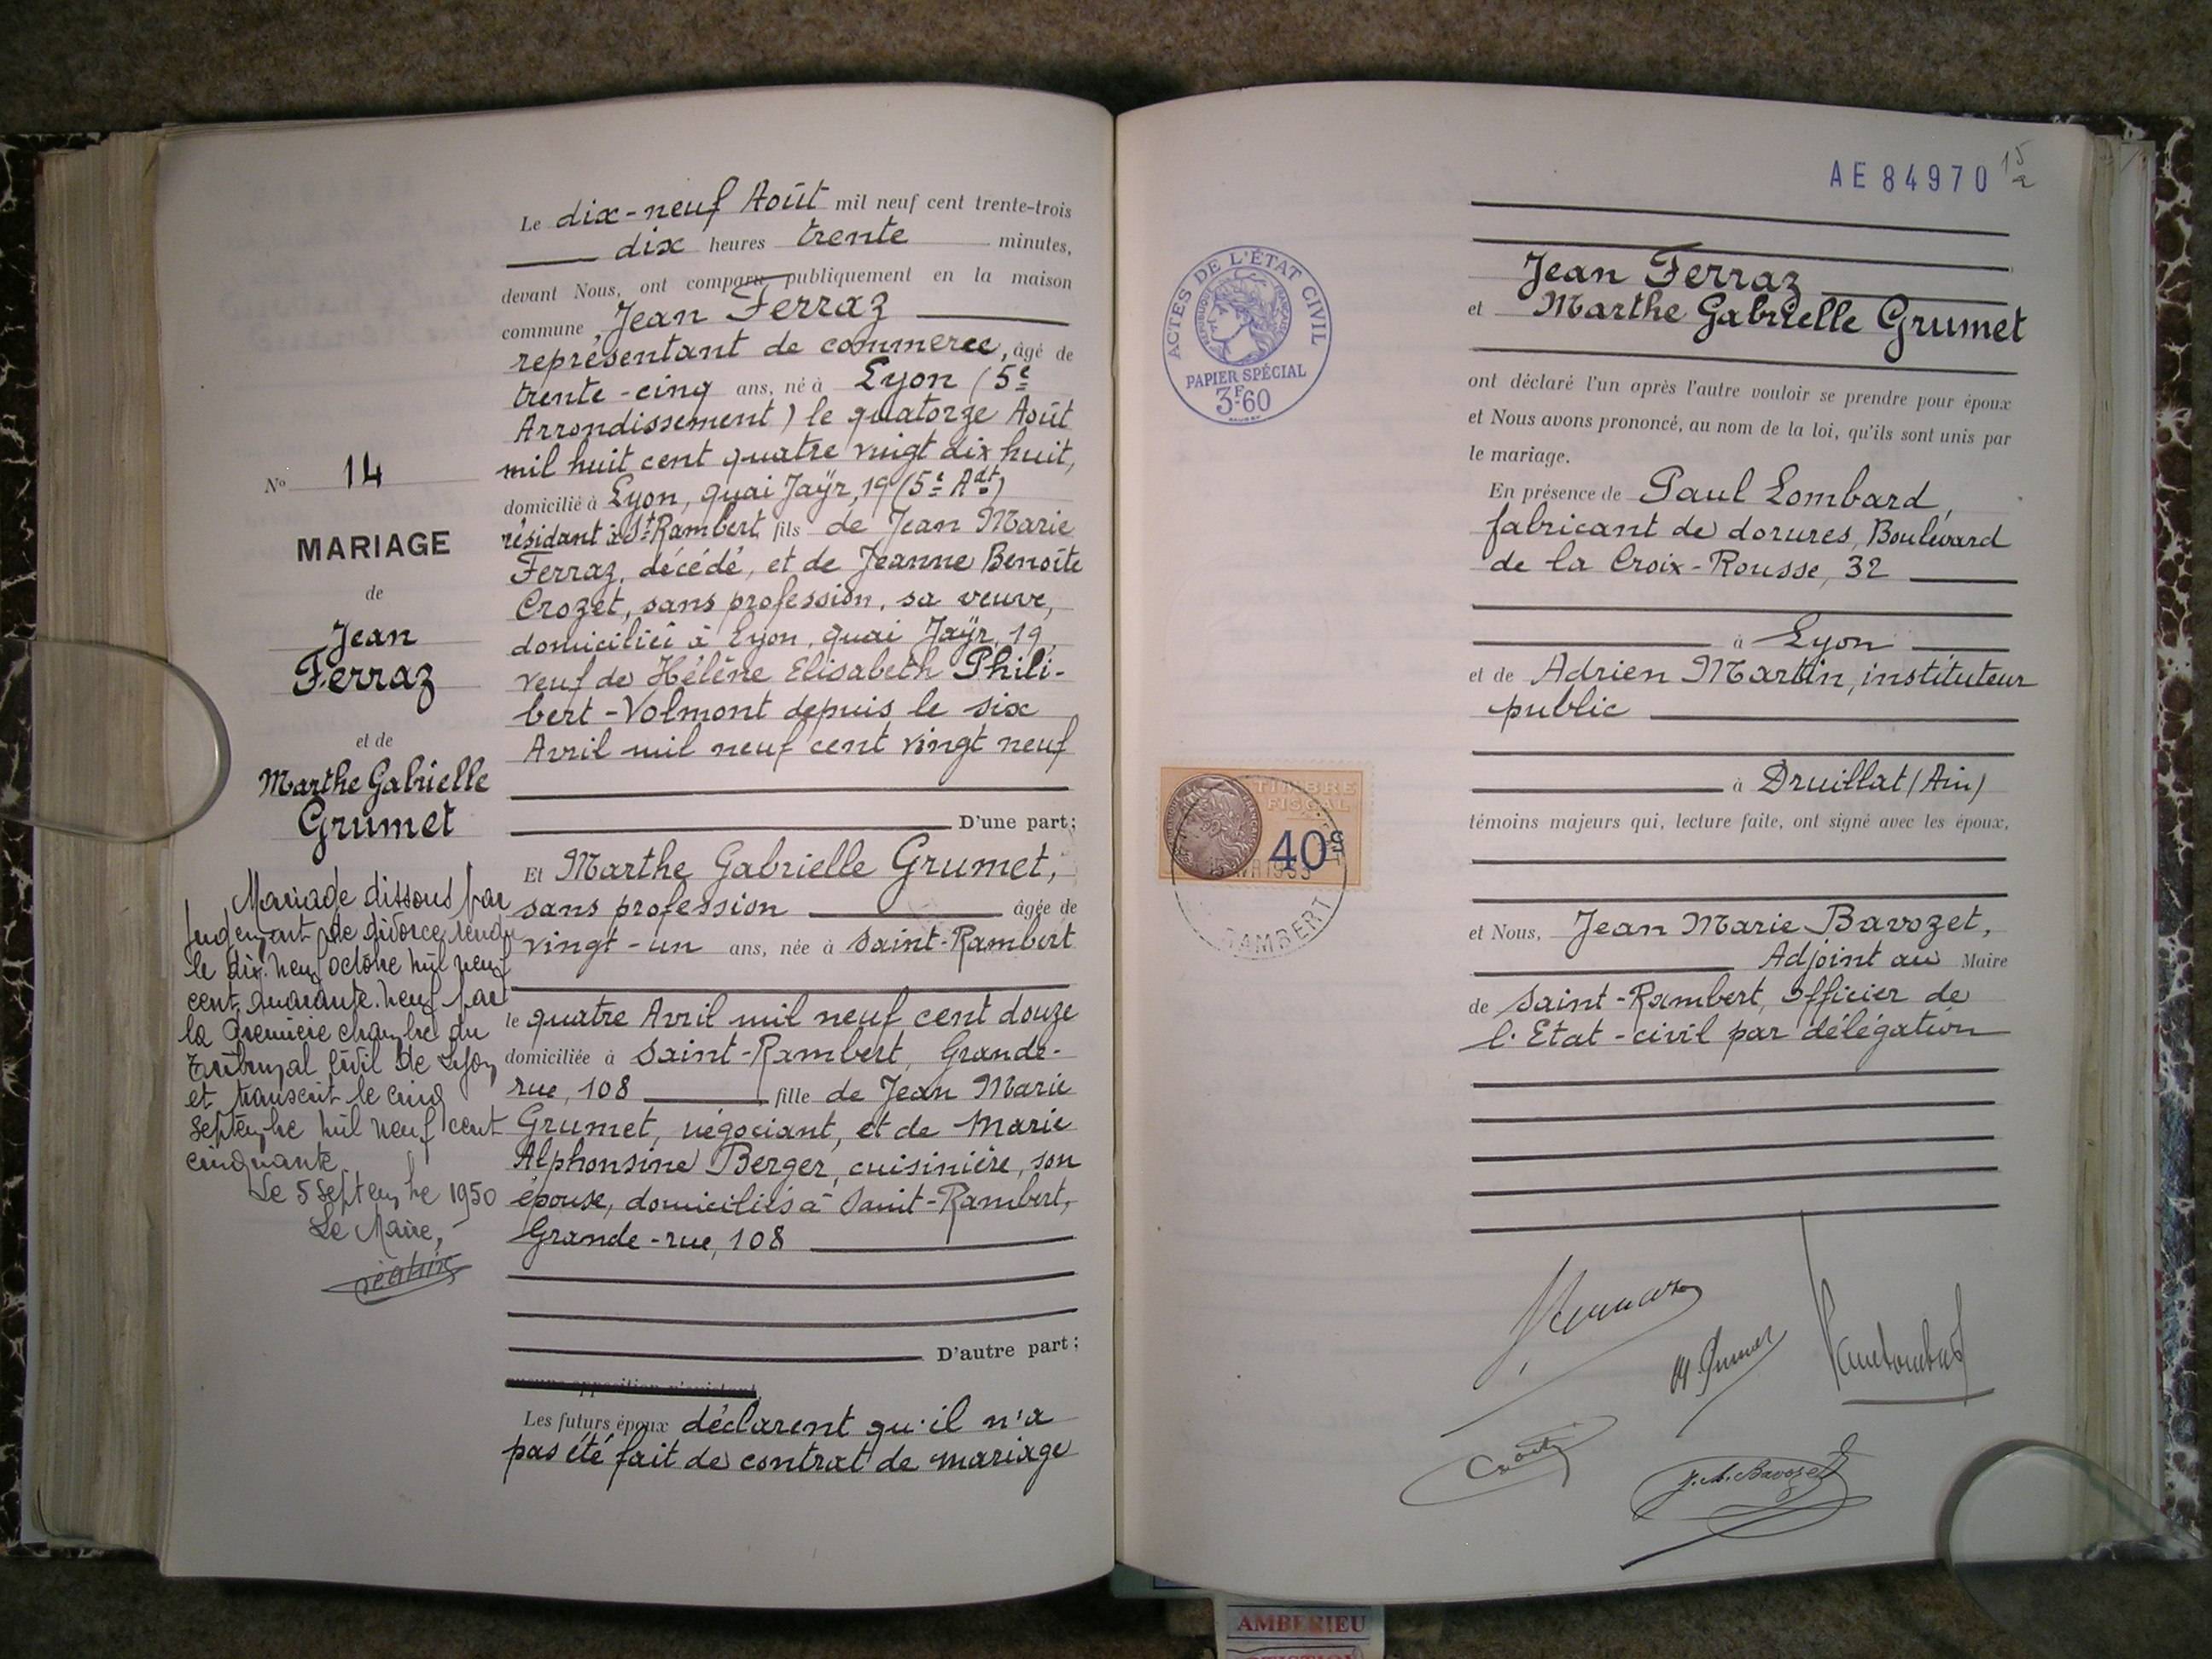 Le dix-neuf Août mil neuf cent trente-trois
dix heures trente minutes,
devant Nous, ont comparu publiquement en la maison
commune, Jean Ferraz
représentant de commerce, âgé de
trente-cinq ans, né à Lyon (5e
Arrondissement) le quatorze Août
mil huit cent quatre vingt dix huit,
domicilié à Lyon, quai Jaÿr, 19 (5e Adt)
résidant à St Rambert, fils de Jean Marie
Ferraz, décédé, et de Jeanne Benoîte
Crozet, sans profession, sa veuve,
domiciliée à Lyon, quai Jaÿr, 19,
veuf de Hélène Elisabeth Phili-
bert-Volmont depuis le six
Avril mil neuf cent vingt neuf
D'une part;
Et Marthe Gabrielle Grumet,
sans profession âgée de
vingt-un ans, née à Saint-Rambert
le quatre Avril mil neuf cent douze
domiciliée à Saint-Rambert, Grande-
rue, 108 fille de Jean Marie
Grumet, négociant, et de Marie
Alphonsine Berger, cuisinière, son
épouse, domiciliés à Saint-Rambert,
Grande-rue, 108
D'autre part;
aucune opposition n'existant
Les futurs époux déclarent qu'il n'a
pas été fait de contrat de mariage
No 14
MARIAGE
de
Jean
Ferraz
et de
Marthe Gabrielle
Grumet
Mariage dissous par
jugement de divorce rendu
le dix-neuf octobre mil neuf
cent quarante-neuf par
la première chambre du
Tribunal Civil de Lyon
et transcrit le cinq
septembre mil neuf cent
cinquante
Le 5 septembre 1950
Le Maire,
AE 84970
15
2
ACTES DE L'ÉTAT CIVIL
RÉPUBLIQUE FRANÇAISE
PAPIER SPÉCIAL
3F.60
Jean Ferraz
et Marthe Gabrielle Grumet
ont déclaré l'un après l'autre vouloir se prendre pour époux
et Nous avons prononcé, au nom de la loi, qu'ils sont unis par
le mariage.
En présence de Paul Lombard,
fabricant de dorures, Boulevard
de la Croix-Rousse, 32
à Lyon
et de Adrien Martin, instituteur
public
à Druillat (Ain)
témoins majeurs qui, lecture faite, ont signé avec les époux,
TIMBRE
FISCAL
40c
RAMBERT
et Nous, Jean Marie Bavozet,
Adjoint au Maire
de Saint-Rambert, officier de
l'Etat-civil par délégation
M Grumet
J.M. Bavozet
AMBERIEU